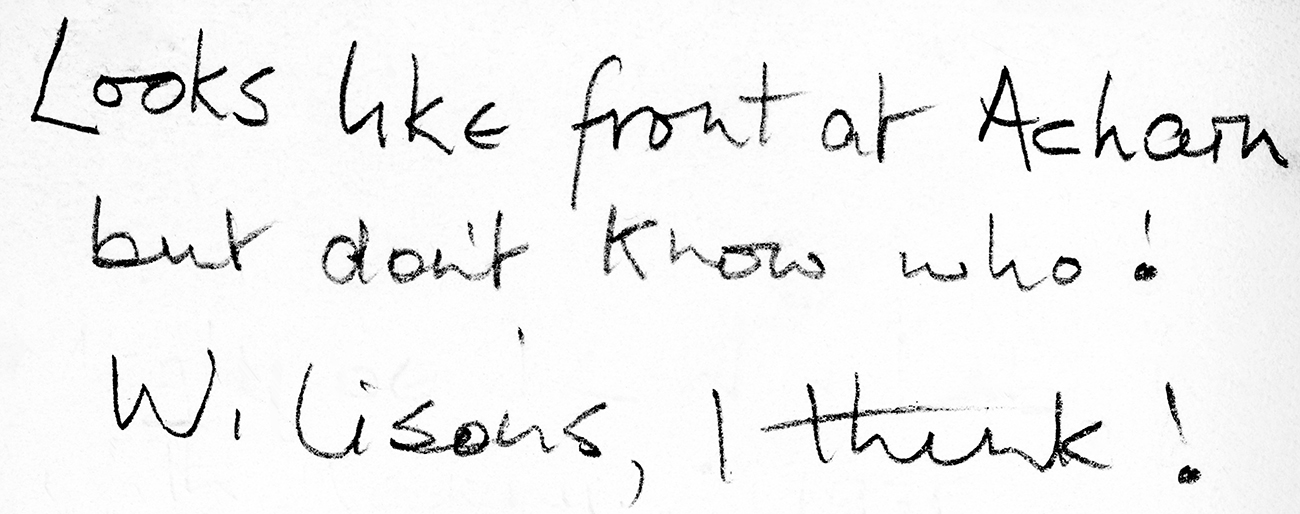 Looks like front at Acharn
but don't know who!
Wilisons, I think!